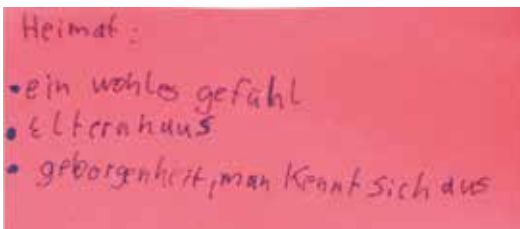 Heimat:
• ein wohles gefühl
• Elternhaus
• geborgenheit, man kennt sich aus